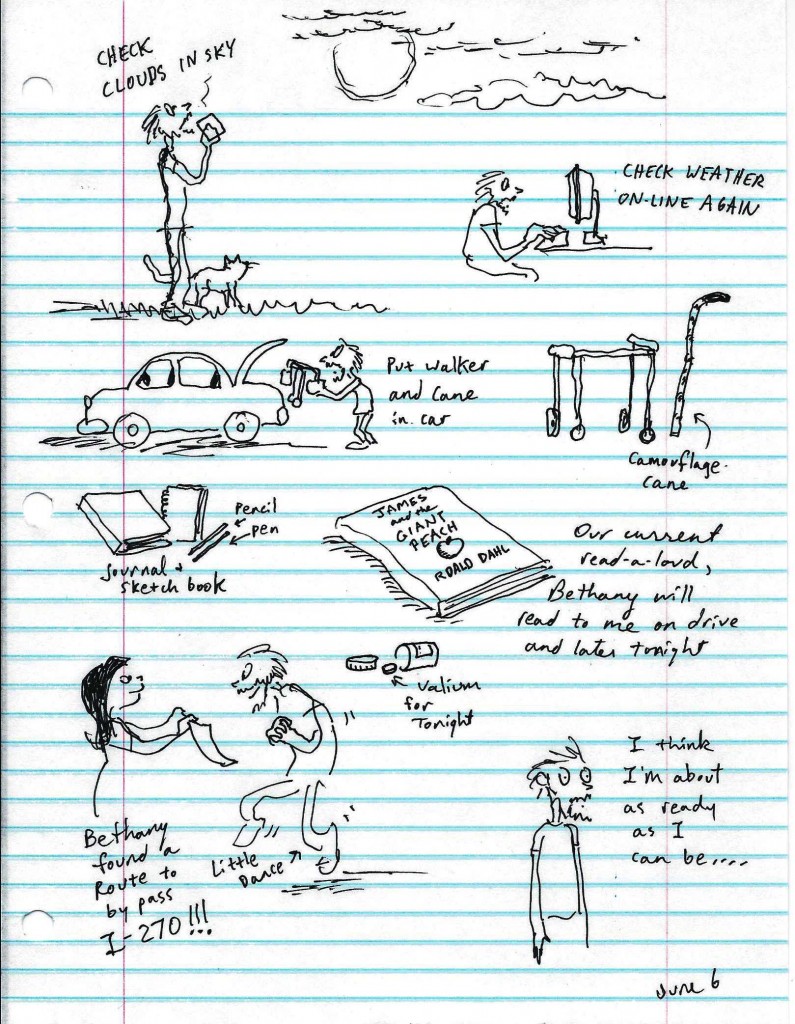 CHECK
CLOUDS IN SKY
CHECK WEATHER
ON-LINE AGAIN
Put walker
and cane
in car
Camouflage
cane
Pencil
pen
Journal +
sketch book
JAMES
and the
GIANT
PEACH
ROALD DAHL
Our current
read-a-loud,
Bethany will
read to me on drive
and later tonight
Valium
for
Tonight
Bethany
found a
Route to
by pass
I-270!!!
Little
Dance
I think
I'm about
as ready
as I
can be....
June 6